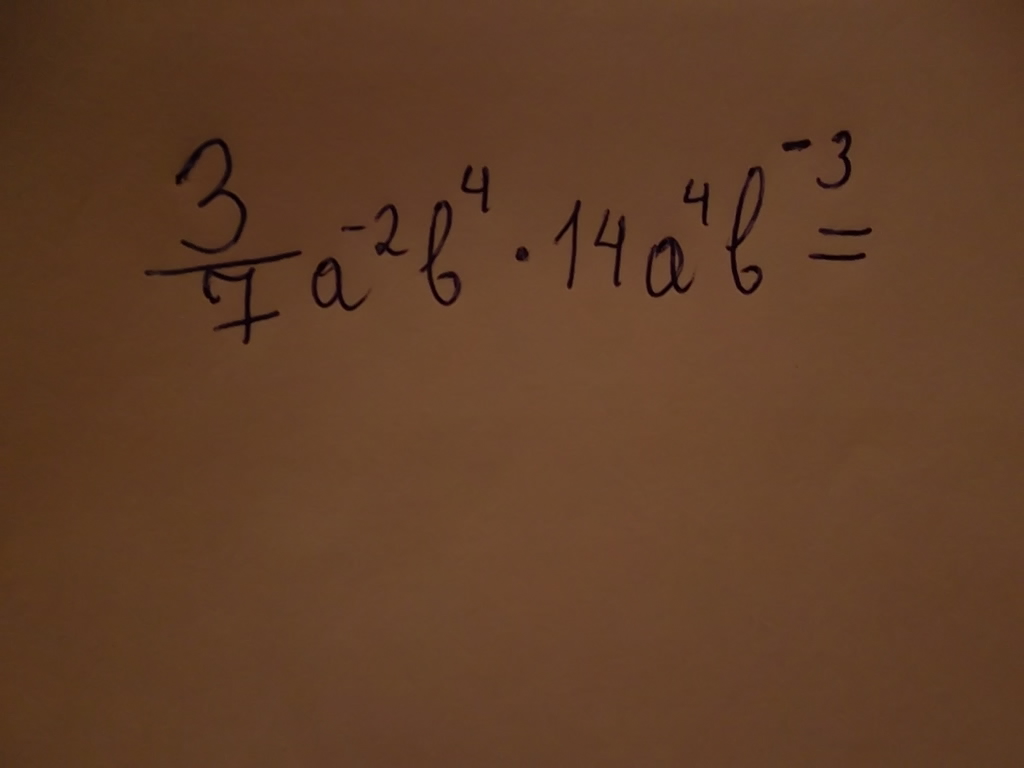 $\frac{3}{7}a^{-2}b^{4} \cdot 14a^{4}b^{-3} =$